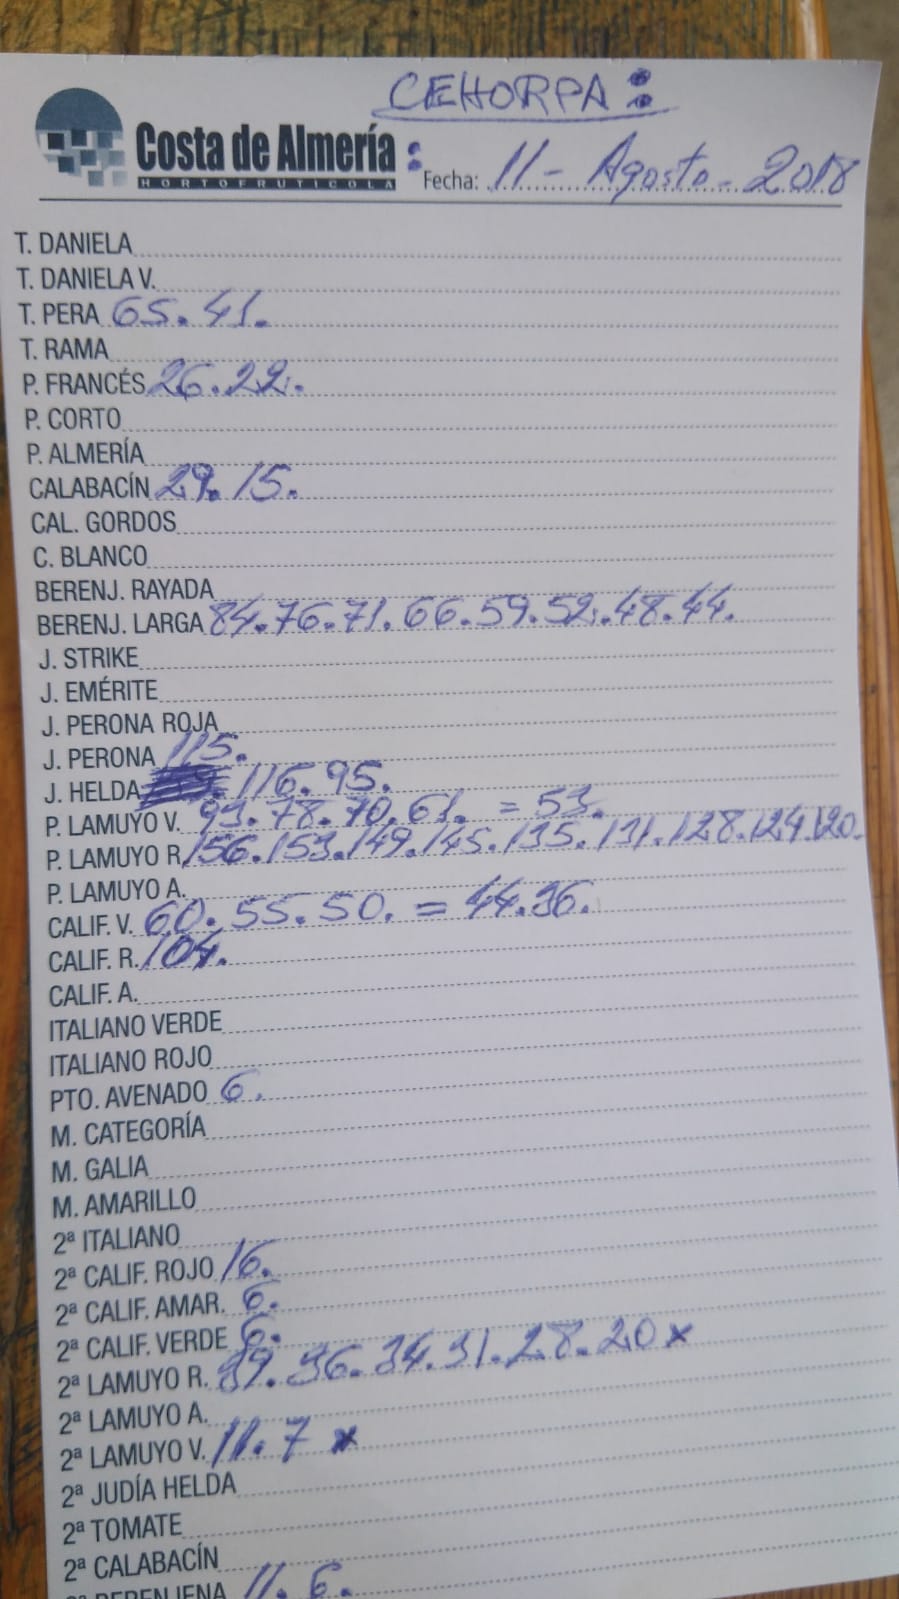 CEHORPA:
Costa de Almería :
HORTOFRUTICOLA
Fecha: 11 - Agosto - 2018
T. DANIELA
T. DANIELA V.
T. PERA 65. 41.
T. RAMA
P. FRANCÉS 26. 22.
P. CORTO
P. ALMERÍA
CALABACÍN 29. 15.
CAL. GORDOS
C. BLANCO
BERENJ. RAYADA
BERENJ. LARGA 84. 76. 71. 66. 59. 52. 48. 44.
J. STRIKE
J. EMÉRITE
J. PERONA ROJA
J. PERONA 115.
J. HELDA 116. 95.
P. LAMUYO V. 93. 78. 70. 61. = 53.
P. LAMUYO R. 156. 153. 149. 145. 135. 131. 128. 124. 120.
P. LAMUYO A.
CALIF. V. 60. 55. 50. = 44. 36.
CALIF. R. 104.
CALIF. A.
ITALIANO VERDE
ITALIANO ROJO
PTO. AVENADO 6.
M. CATEGORÍA
M. GALIA
M. AMARILLO
2ª ITALIANO
2ª CALIF. ROJO 16.
2ª CALIF. AMAR. 6.
2ª CALIF. VERDE 6.
2ª LAMUYO R. 39. 36. 34. 31. 28. 20 x
2ª LAMUYO A.
2ª LAMUYO V. 11. 7 x
2ª JUDÍA HELDA
2ª TOMATE
2ª CALABACÍN
2ª BERENJENA 11. 6.